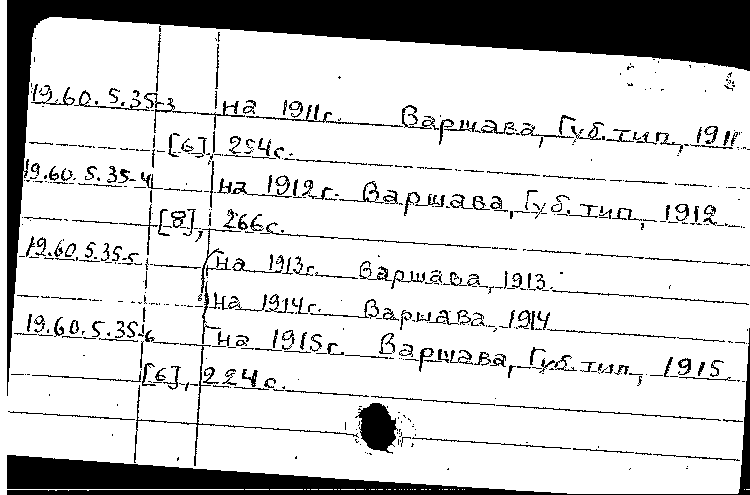 19.60.5.35-3 на 1911г. Варшава, Губ. тип, 1911
[6], 254с.
19.60.5.35-4 на 1912г. Варшава, Губ. тип, 1912
[8], 266с.
19.60.5.35-5 на 1913г. Варшава, 1913.
на 1914г. Варшава, 1914
19.60.5.35-6 на 1915г. Варшава, Губ. тип, 1915.
[6], 224с.